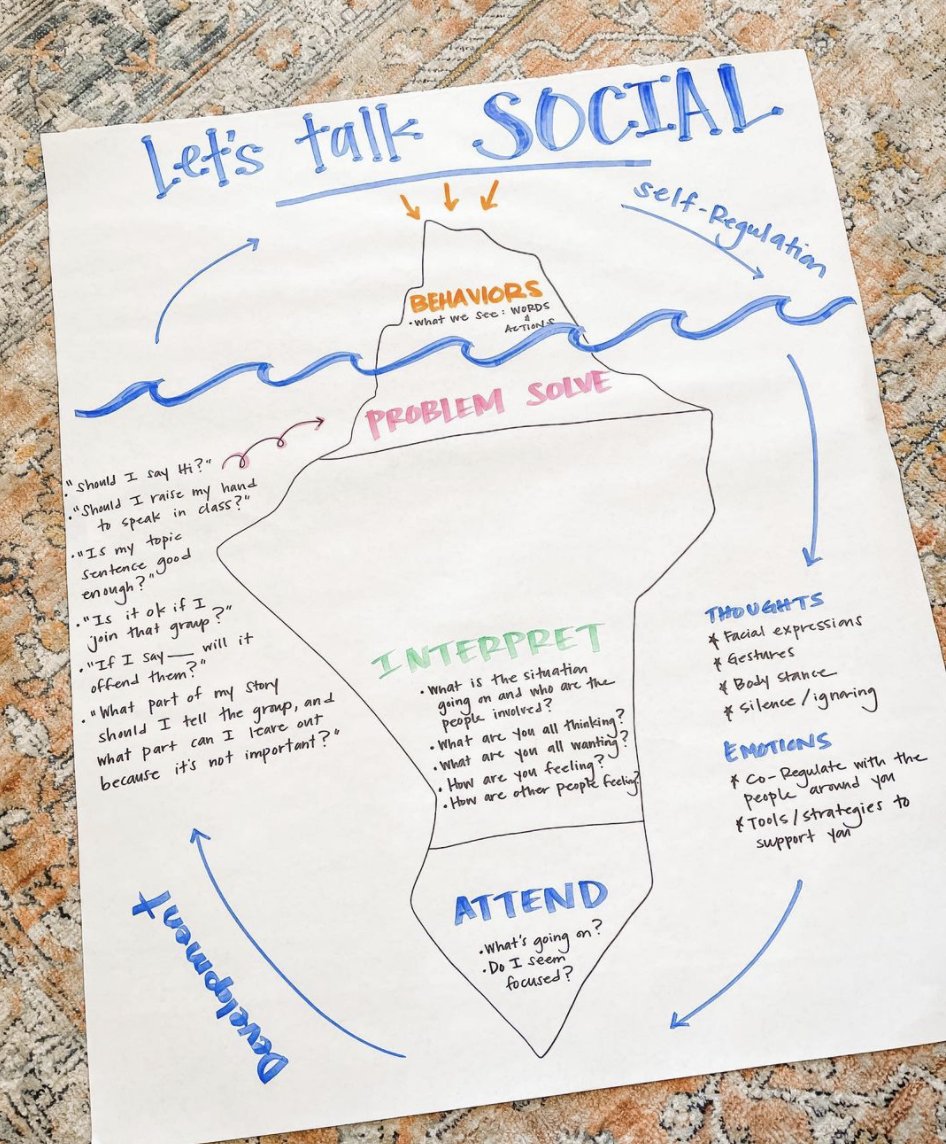 Let's talk SOCIAL
self-Regulation
BEHAVIORS
• What we see: WORDS
&
ACTIONS
PROBLEM SOLVE
• "Should I say Hi?"
• "Should I raise my hand
to speak in class?"
• "Is my topic
sentence good
enough?"
• "Is it ok if I
join that group?"
• "If I say ___ will it
offend them?"
• "What part of my story
should I tell the group, and
what part can I leave out
because it's not important?"
INTERPRET
• What is the situation
going on and who are the
people involved?
• What are you all thinking?
• What are you all wanting?
• How are you feeling?
• How are other people feeling?
THOUGHTS
* Facial expressions
* Gestures
* Body stance
* Silence/ignoring
EMOTIONS
* Co-Regulate with the
people around you
* Tools/strategies to
support you
ATTEND
• What's going on?
• Do I seem
focused?
Development